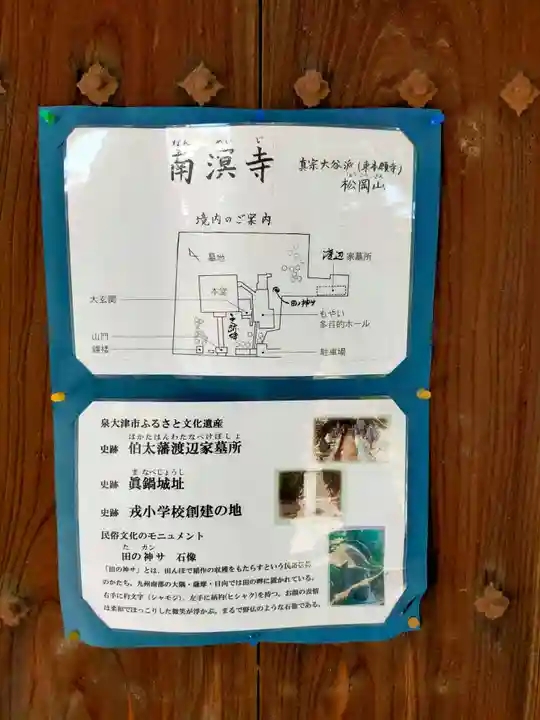 なん めい じ
南溟寺
真宗大谷派(東本願寺)
松岡山
境内のご案内
墓地
渡辺家墓所
本堂
田の神サ
大玄関
もやい
多目的ホール
山門
鐘楼
駐車場
泉大津市ふるさと文化遺産
はかたはんわたなべけぼしょ
史跡 伯太藩渡辺家墓所
まなべじょうし
史跡 眞鍋城址
史跡 戎小学校創建の地
民俗文化のモニュメント
た カン
田の神サ 石像
「田の神サ」とは、田んぼで稲作の収穫をもたらすという民間信仰
のかたち。九州南部の大隅・薩摩・日向では田の畔に置かれている。
右手に杓文字(シャモジ)、左手に柄杓(ヒシャク)を持つ。お顔の表情
は柔和でほっこりした微笑が浮かぶ。まるで野仏のような石像である。